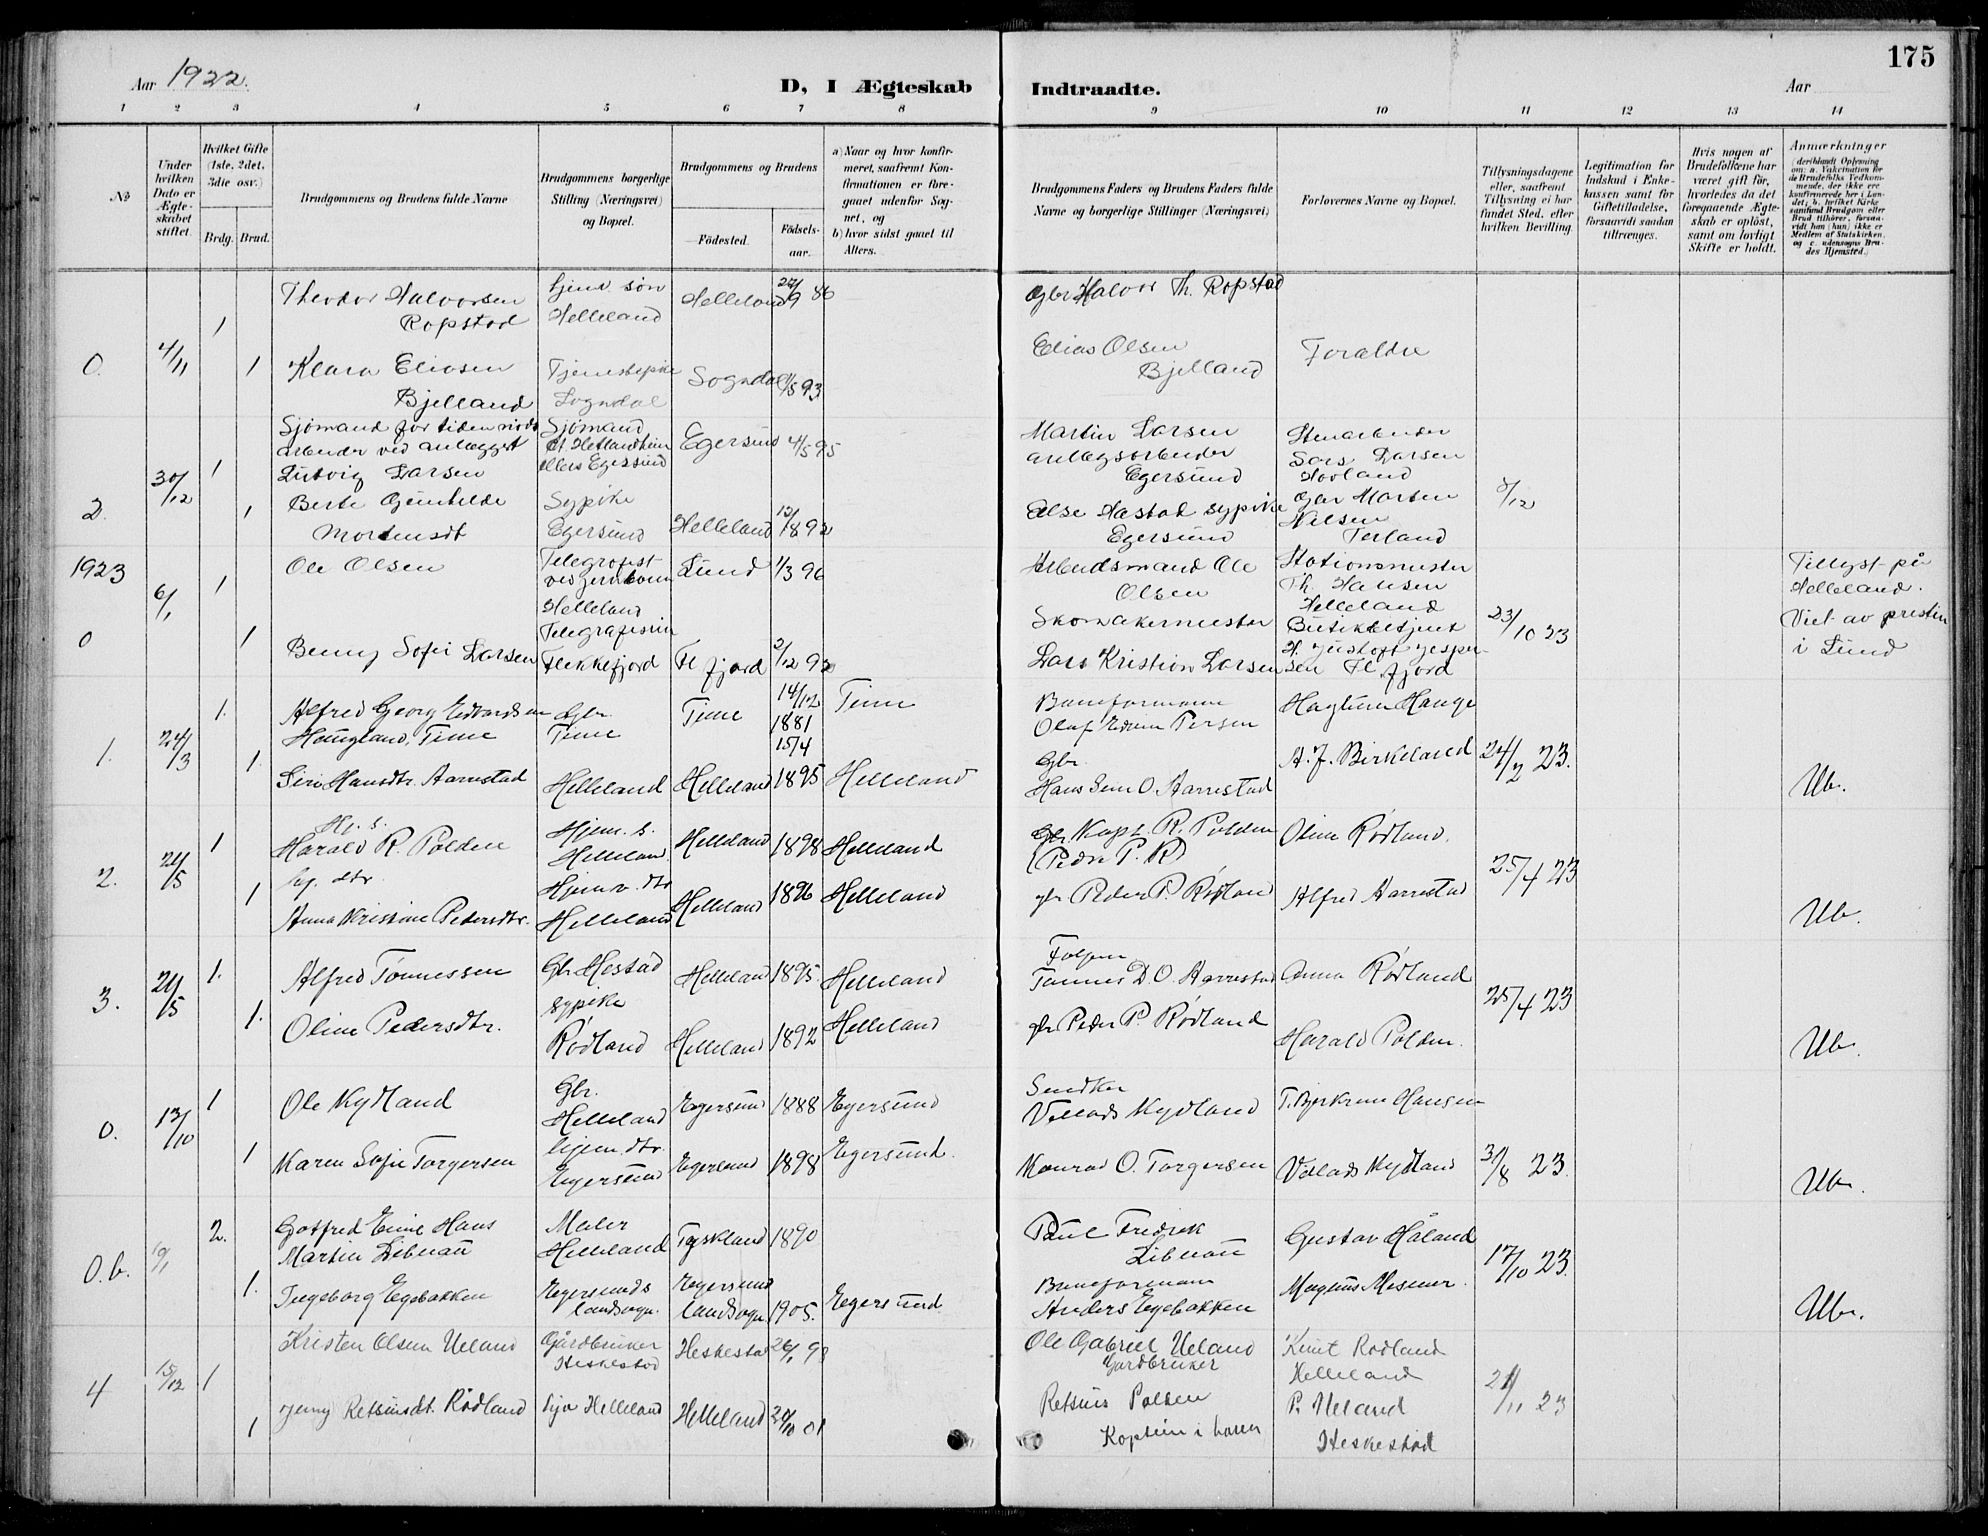 175
Aar 1922.
D, I Ægteskab Indtraadte.
Aar
1 2 3 4 5 6 7 8 9 10 11 12 13 14
No
Under hvilken Dato er Ægteskabet stiftet.
Hvilket Gifte (1ste, 2det, 3die osv.)
Brdg. Brud.
Brudgommens og Brudens fulde Navne
Brudgommens borgerlige Stilling (Næringsvei) og Bopæl.
Brudgommens og Brudens
Födested.
Födsels-aar.
a) Naar og hvor konfirmeret, saafremt Konfirmationen er foregaaet udenfor Sognet, og
b) hvor sidst gaaet til Alters.
Brudgommens Faders og Brudens Faders fulde Navne og borgerlige Stillinger (Næringsvei)
Forlovernes Navne og Bopæl.
Tillysningsdagene eller, saafremt Tillysning ei har fundet Sted, efter hvilken Bevilling.
Legitimation for Indskud i Enkekassen samt for Giftetilladelse, forsaavidt saadan tiltrænges.
Hvis nogen af Brudefolkene har været gift för, hvorledes da det foregaaende Ægteskab er oplöst, samt om lovligt Skifte er holdt.
Anmærkninger
(deriblandt Oplysning om: a. Vakcination for de Brudefolks Vedkommende, der ikke ere konfirmerede her i Landet; b. hvilket Kirkesamfund Brudgom eller Brud tilhörer, forsaavidt han (hun) ikke er Medlem af Statskirken, og c. udensogns Brudes Hjemsted.)
Theodor Halvorsen Ropstad
Helleland
Helleland
86
Gbr Halvor Th. Ropstad
0. 4/11 1
1 Klara Eliasen Bjelland
Tjenestepike Sogndal
Sogndal
93
Elias Olsen Bjelland
Forældre
Sjömand for tiden
arbeider ved anlægget
Ludvig Larsen
Sjömand
ellers Egersund
Egersund
4/5 95
Martin Larsen
anlægsarbeider
Egersund
Stenarbeider
Lars Larsen
Hovland
2. 30/12 1
1 Berte Gunhilde Mortensdt
Sypike Egersund
Helleland
12/8 92
Else Hæstad sypike
Egersund
Gbr Morten
Nilsen
Terland
1923
6/1 1
Ole Olsen
Telegrafist
ved jernbanen
Helleland
Lund
1/3 96
Arbeidsmand Ole
Olsen
Stationsmester
Th. Hansen
Helleland
Tillyst på
Helleland.
Viet av presten
i Lund
0
1 Benny Sofie Larsen
Flekkefjord
Fl fjord
2/12 92
Skomakermester
Lars Kristian Larsen
Butikbetjent
Fl. fjord
23/10 23
1. 24/3 1.
Alfred Georg Edvardsen
Haugland, Time
Gbr.
Time
Time
14/12
1881
Time
Baneformann
Hagtun Hauge
1.
Siri Hansdtr. Aarrestad
Helleland
Helleland
15/4
1895
Helleland
Gbr.
Hans Sem O. Aarrestad
A. J. Birkeland
24/2 23.
Ub.
2. 21/5 1
Hj. s.
Harald R. Polden
Hjem. s.
Helleland
Helleland
1898
Helleland
Gbr Kapt. R. Polden
(Peder P. R)
Oline Rødland.
1
hj. dtr.
Anna Kristine Pedersdtr.
Hjemv. dtr
Helleland
Helleland
1896
Helleland
gbr Peder P. Rødland
Alfred Aarrestad
25/4 23
Ub.
3. 21/5 1.
Alfred Tönnessen
Gbr Hestad
Helleland
1895
Helleland
Tønnes D. O. Aarrestad
Anna Rødland
1.
Oline Pedersdtr.
sypike
Rødland
Helleland
1892
Helleland
gbr Peder P. Rødland
Harald Polden.
25/4 23
Ub.
0. 13/10 1
Ole Kydland
Gbr.
Helleland
Egersund
1888
Egersund
Vellads Kydland
T. Bjerkrem Hansen
1
Karen Sofie Torgersen
hjem. dtr.
Egersund
Egersund
1898
Egersund.
Konrad O. Torgersen
Vellads Kydland
31/8 23.
Ub.
0.b. 2.
Gotfred Emil Hans
Martin Libnau
Maler
Helleland
Tyskland
1890
Paul Fredrik
Libnau
Gustav Håland
1.
Ingeborg Egebakken
Egersunds
landsogn.
Egersund
landsogn
1905.
Egersund
Baneformann
Anders Egebakken
17/10 23.
Ub.
4 15/12 1
Kristen Olsen Ueland
Gårdbruker
Heskestad
Heskestad
Ole Gabriel Ueland
Gårdbruker
Knut Rødland
Helleland
1
Jenny Retsiusdt. Rødland
Helleland
Helleland
01
Retsius Polden
Koptein i hæren
P. Ueland
Heskestad
21/11 23